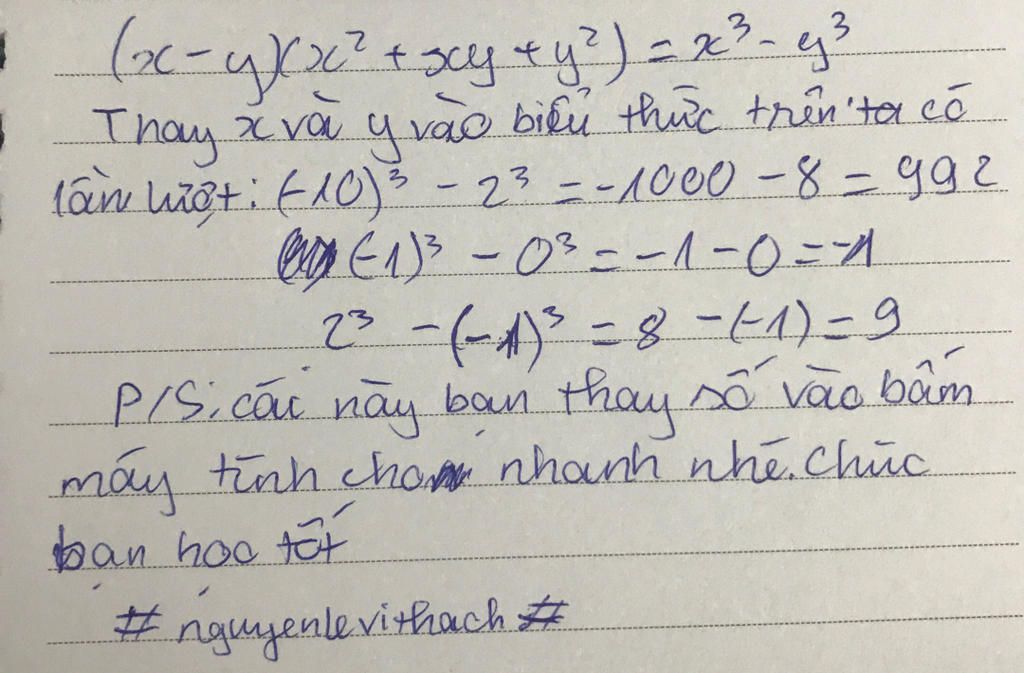 (x - y)(x² + xy + y²) = x³ - y³
Thay x và y vào biểu thức trên ta có
lần lượt: (-10)³ - 2³ = -1000 - 8 = 992
(-1)³ - 0³ = -1 - 0 = -1
2³ - (-1)³ = 8 - (-1) = 9
P/S: các này bạn thay số vào bấm
máy tính cho nhanh nhé. Chúc
bạn học tốt
# nguyenlevithach #